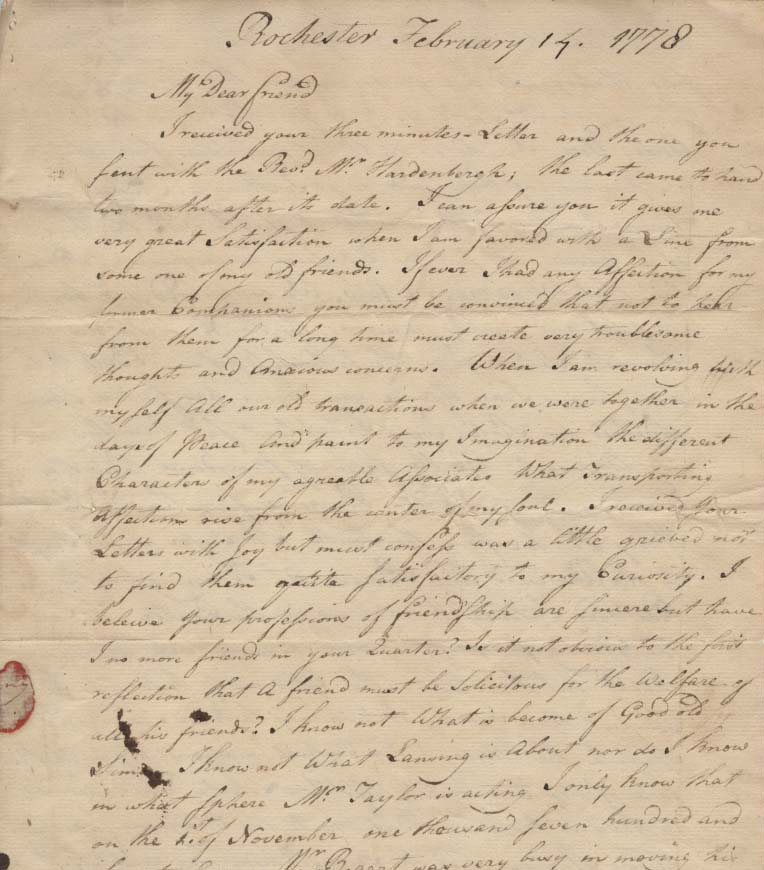 Rochester February 14. 1778
My Dear friend
I received your three minutes-Letter and the one you
sent with the Revd. Mr. Hardenbergh; the last came to hand
two months after its date. I can assure you it gives me
very great Satisfaction when I am favored with a Line from
some one of my old friends. If ever I had any Affection for my
former Companions you must be convinced that not to hear
from them for a long time must create very troublesome
thoughts and Anxious concerns. When I am revolving with
myself All our old transactions when we were together in the
days of Peace And paint to my Imagination the different
Characters of my agreable Associates What Transporting
Affections rise from the center of my soul. I received Your
Letters with Joy but must confess was a little grieved not
to find them quite Satisfactory to my Curiosity. I
beleive your professions of friendship are sincere but have
I no more friends in your Quarter? Is it not obvious to the first
reflection that A friend must be Solicitous for the Welfare of
all his friends? I know not What is become of Good old
I know not What Lansing is About nor do I know
in what sphere Mr. Taylor is acting I only know that
on the of November one thousand seven hundred and
Mr Bogart was very busy in moving his